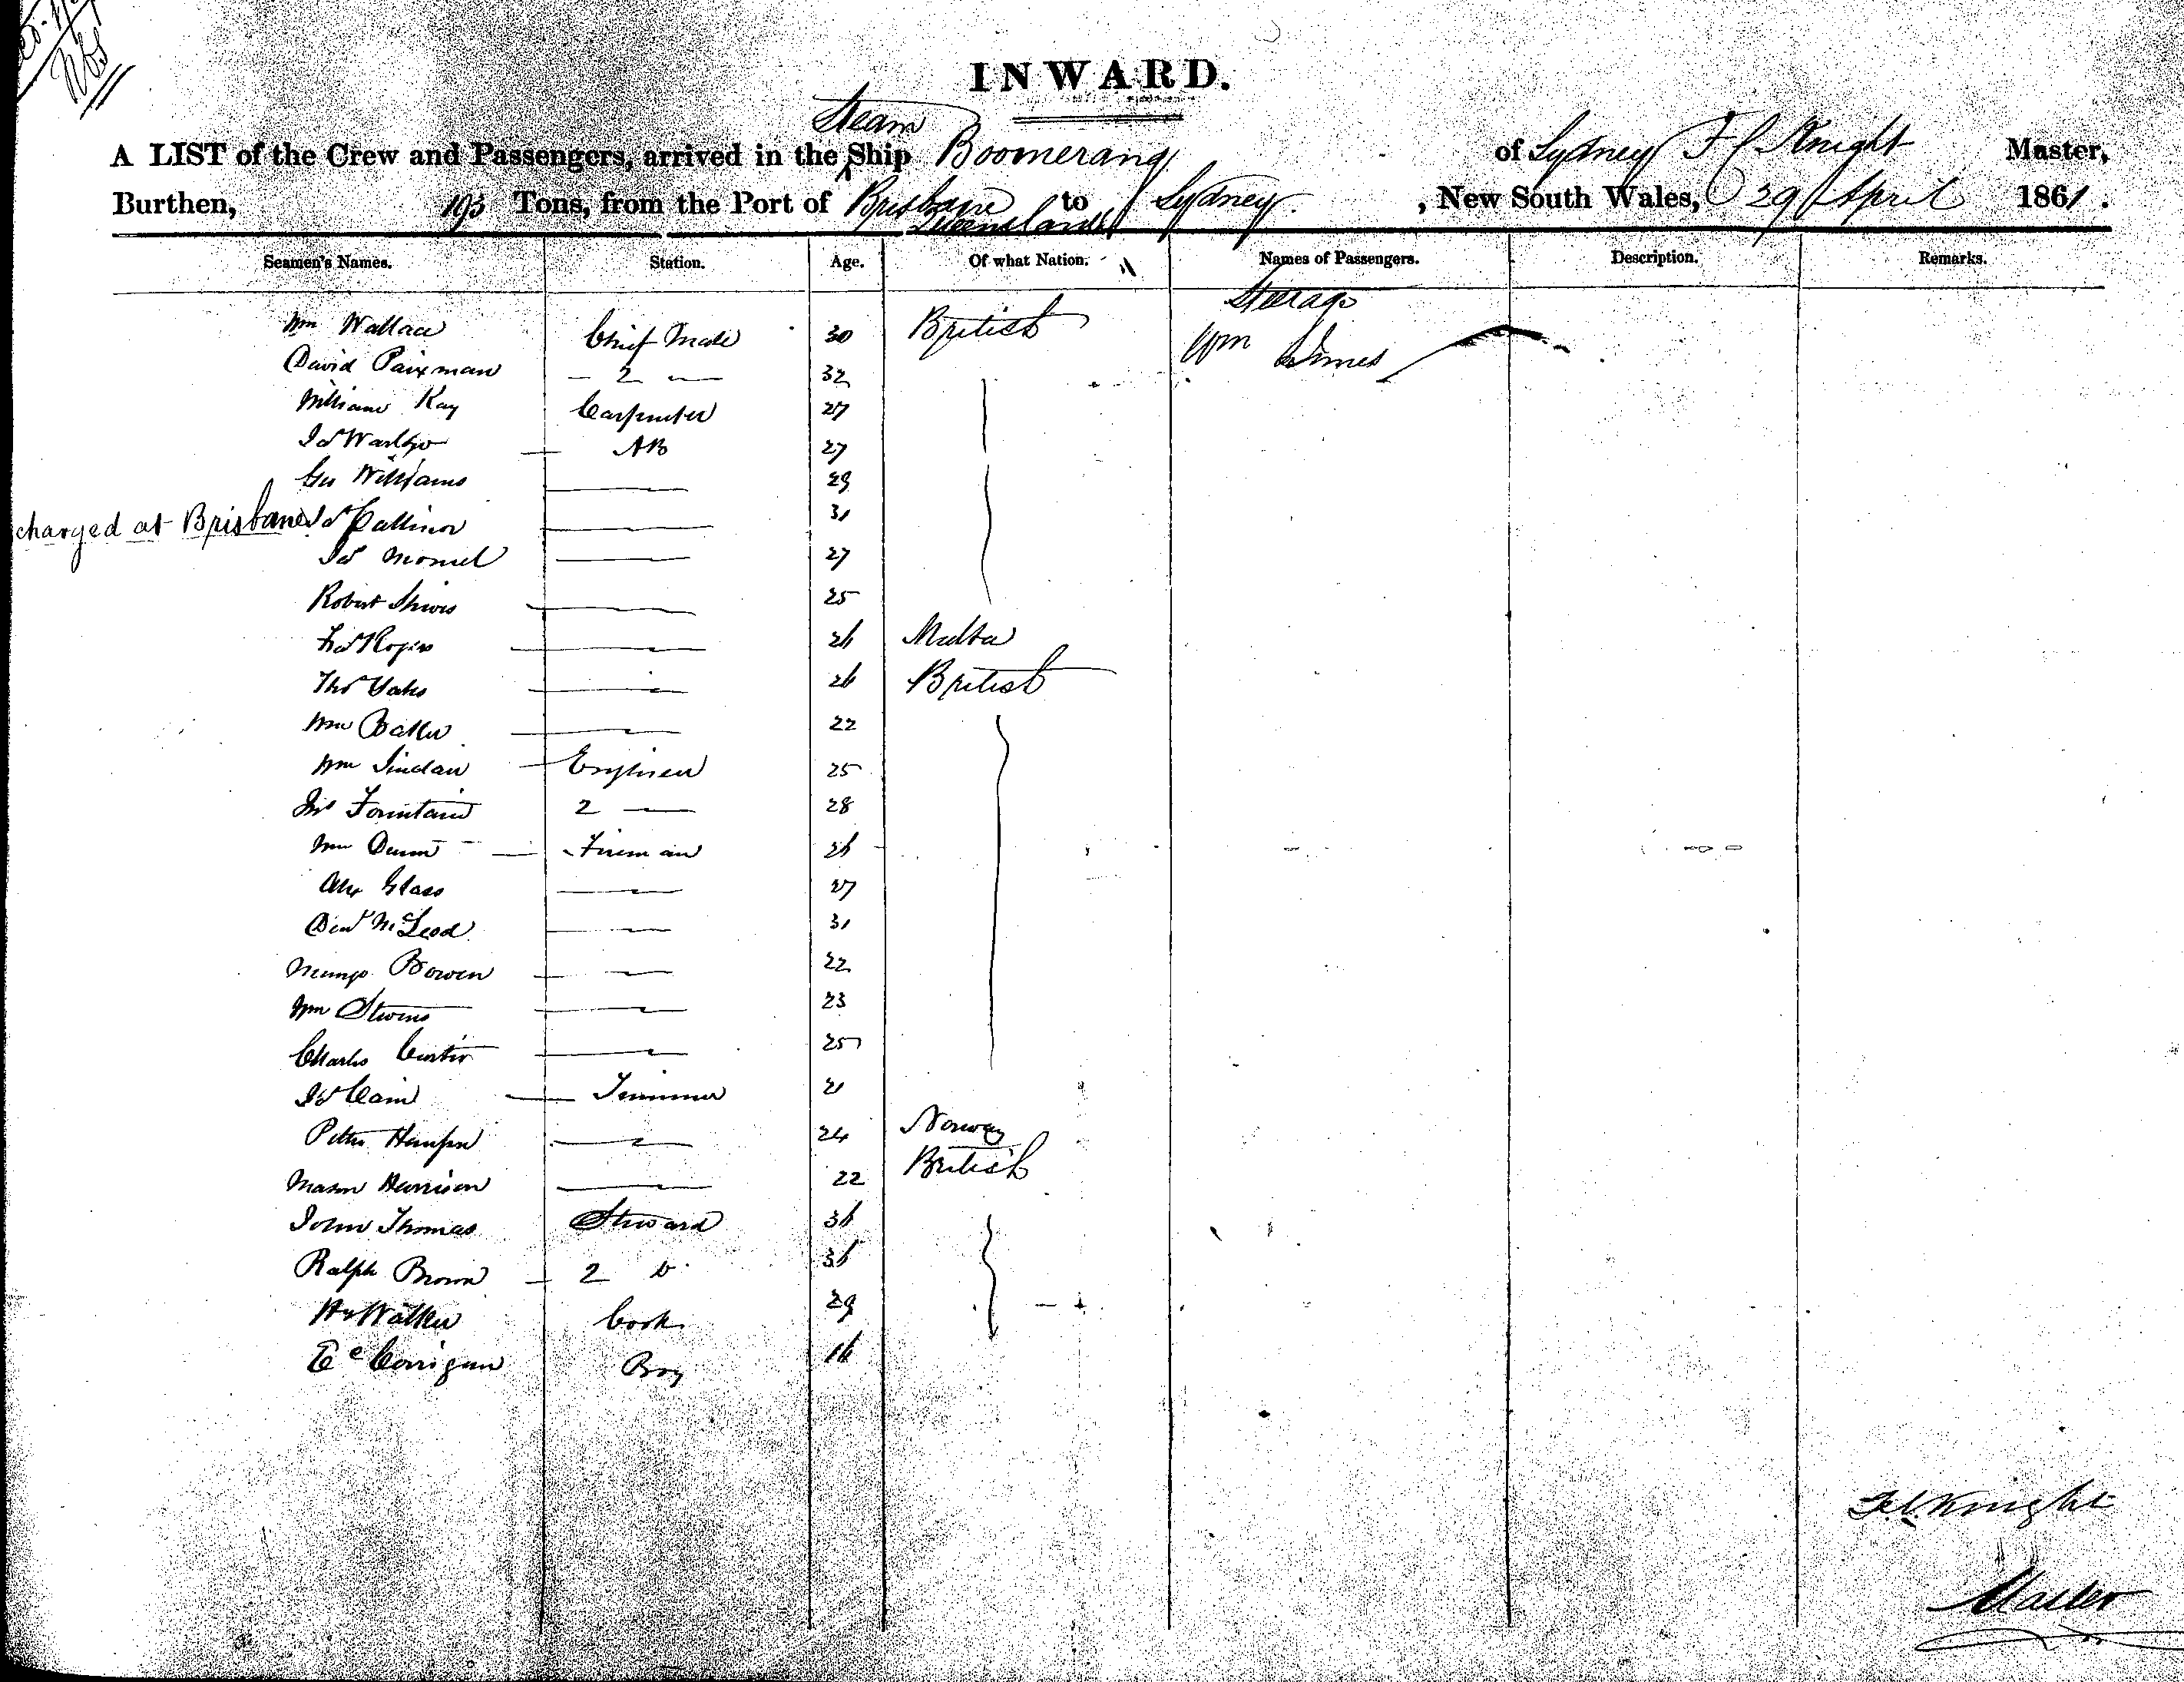 INWARD.
Steam
A LIST of the Crew and Passengers, arrived in the Ship Boomerang of Sydney F C Knight Master,
Burthen, 193 Tons, from the Port of Brisbane to Sydney, New South Wales, 29 April 1861.
Queensland
Seamen's Names. Station. Age. Of what Nation. Names of Passengers. Description. Remarks.
Steerage
Wm Wallace Chief Mate 30 British Wm
David Paixman 2 32
William Kay Carpenter 27
AB 27
Geo Williams 29
charged at Brisbane Jas Pallinor 31
Jas 27
Robert 25
Rogers 26 Malta
Thos Yates 26 British
Wm Baller 22
Wm Sinclair Engineer 25
Jno Fountain 2 28
Wm Dunn Fireman 26
Alex Glass 27
McLeod 31
Mungo Bowen 22
Wm Stevens 23
Charles Curtis 25
Jas Cain Trimmer 21
Peter 24 Norway
Mason Harrison 22 British
John Thomas Steward 36
Ralph Brown 2 Do 36
Hy Walker Cook 29
Corrigan Boy 16
F C Knight
Master